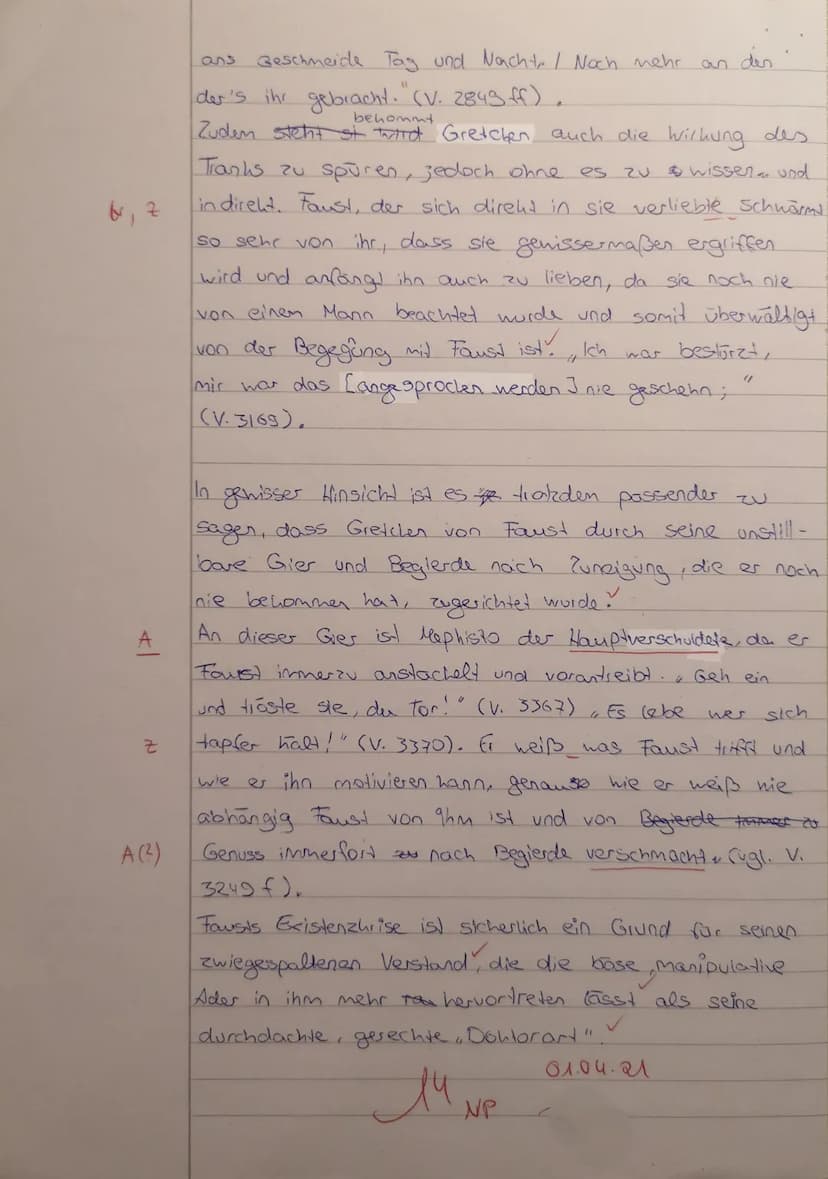 ans Geschmeide Tag und Nacht, / Noch mehr an den
der's ihr gebracht." (V. 2849 ff).
bekommt
Zudem steht wird Gretchen auch die Wirkung des
Tranks zu spüren, jedoch ohne es zu wissen und
N, Z indirekt. Faust, der sich direkt in sie verliebte schwärmt
so sehr von ihr, dass sie gewissermaßen ergriffen
wird und anfängt ihn auch zu lieben, da sie noch nie
von einem Mann beachtet wurde und somit überwältigt
von der Begegung mit Faust ist. „Ich war bestürzt,
mir war das [angesprochen werden] nie geschehn;"
(V. 3169).
In gewisser Hinsicht ist es trotzdem passender zu
sagen, dass Gretchen von Faust durch seine unstill-
bare Gier und Begierde nach Zuneigung, die er noch
nie bekommen hat, zugerichtet wurde.
A An dieser Gier ist Mephisto der Hauptverschuldete, da er
Faust immerzu anstachelt und vorantreibt. „Geh ein
und tröste sie, du Tor!" (V. 3367) „Es lebe wer sich
Z tapfer hält!" (V. 3370). Er weiß was Faust trifft und
wie er ihn motivieren kann, genauso wie er weiß wie
abhängig Faust von Ihm ist und von Begierde immer zu
A(2) Genuss immerfort zu nach Begierde verschmacht. (vgl. V.
3249 f).
Fausts Existenzkrise ist sicherlich ein Grund für seinen
zwiegespaltenen Verstand, die die böse, manipulative
Ader in ihm mehr hervortreten lässt als seine
durchdachte, gerechte „Doktorart".
01.04.21
14 NP